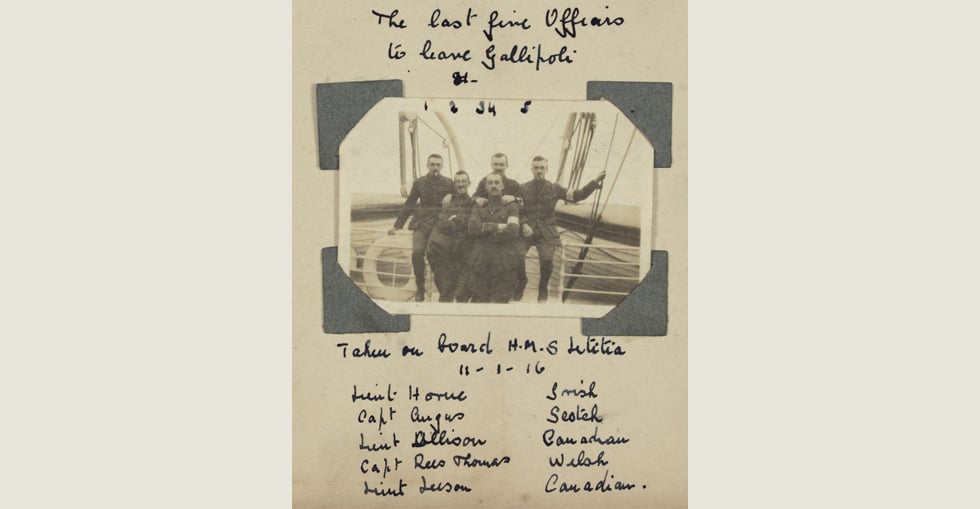 The last five Officers
to leave Gallipoli
1 2 3 4 5
Taken on board H.M.S Letitia
11-1-16
Lieut Horne Irish
Capt Angus Scotch
Lieut Ellison Canadian
Capt Rees Thomas Welsh
Lieut Leeson Canadian.